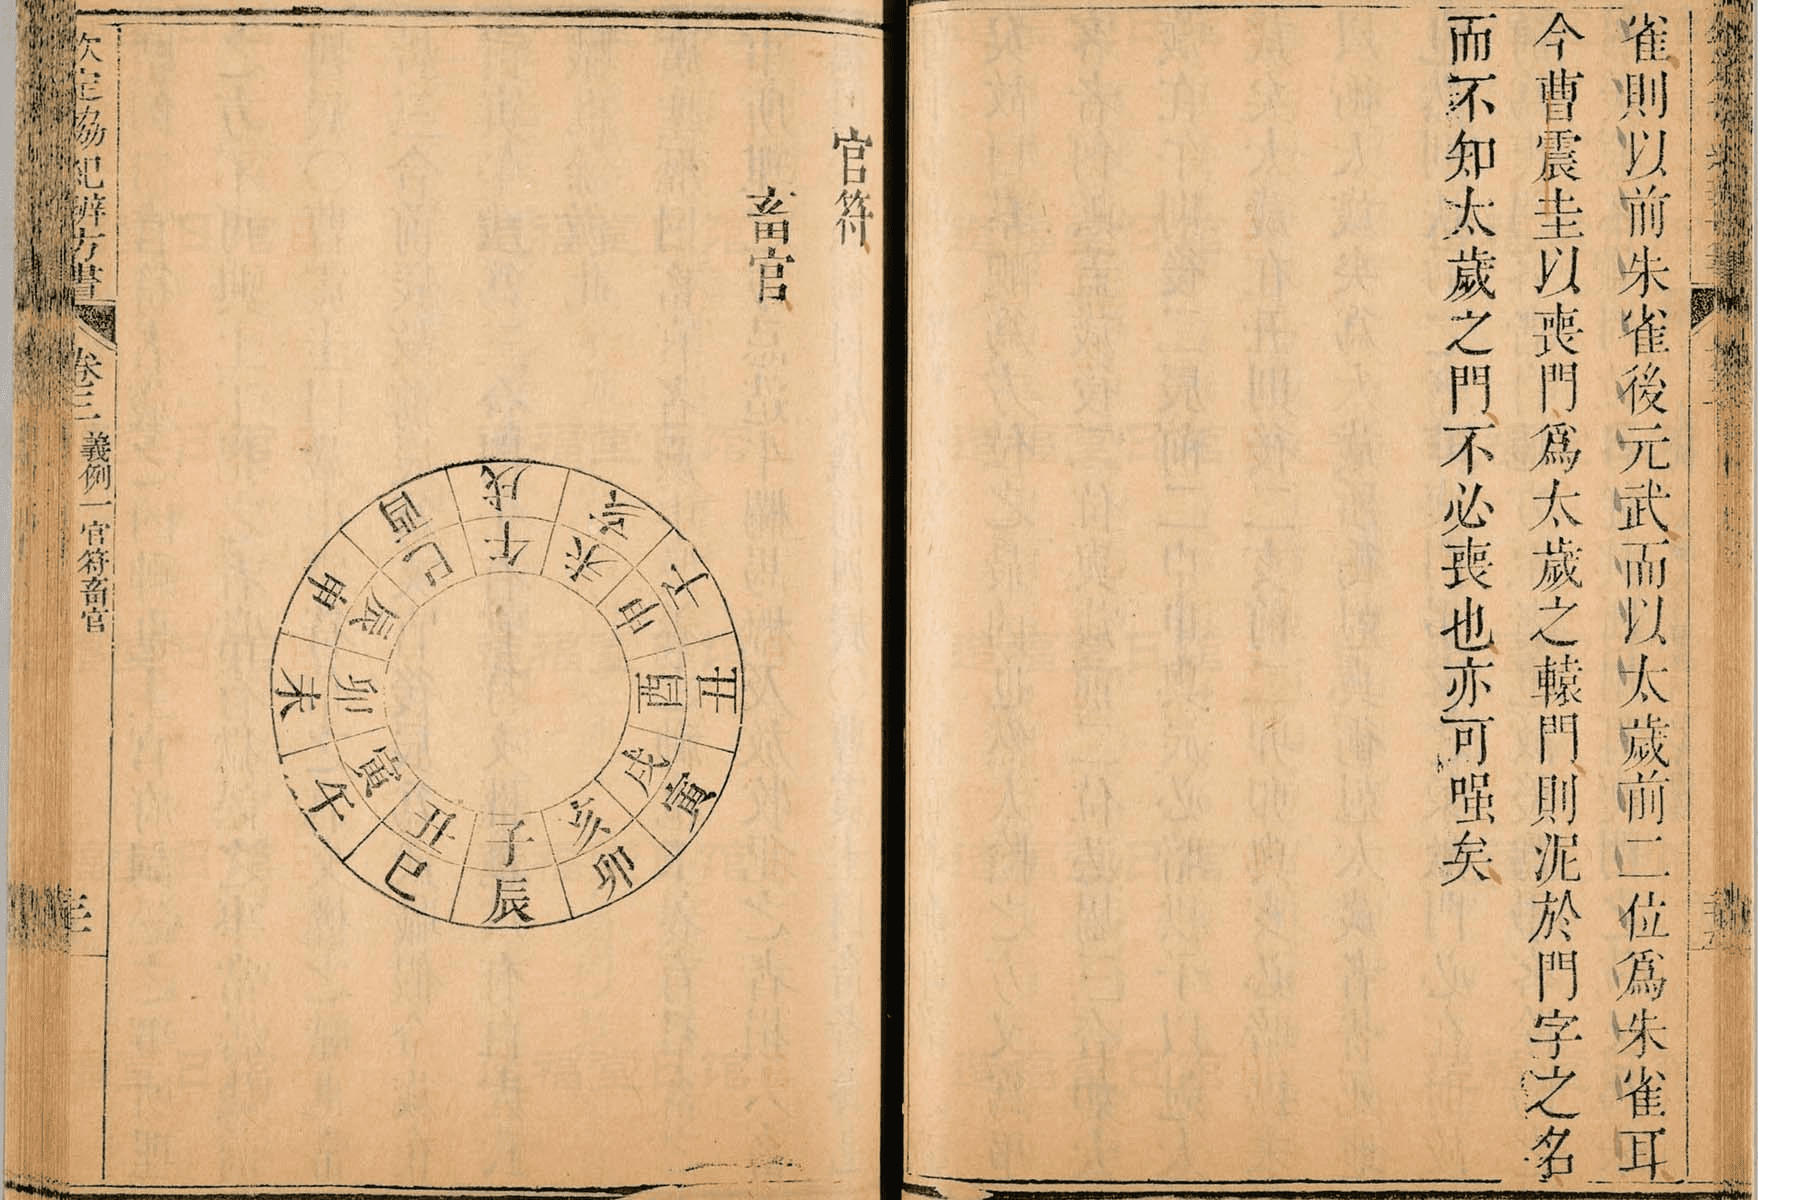 雀則以前朱雀後元武而以太歲前二位爲朱雀耳
今曹震圭以喪門爲太歲之轅門則泥於門字之名
而不知太歲之門不必喪也亦可啞矣
官符
畜官
子丑寅卯辰巳午未申酉戌亥
辰巳午未申酉戌亥子丑寅卯
欽定協紀辨方書
卷三
義例一官符畜官